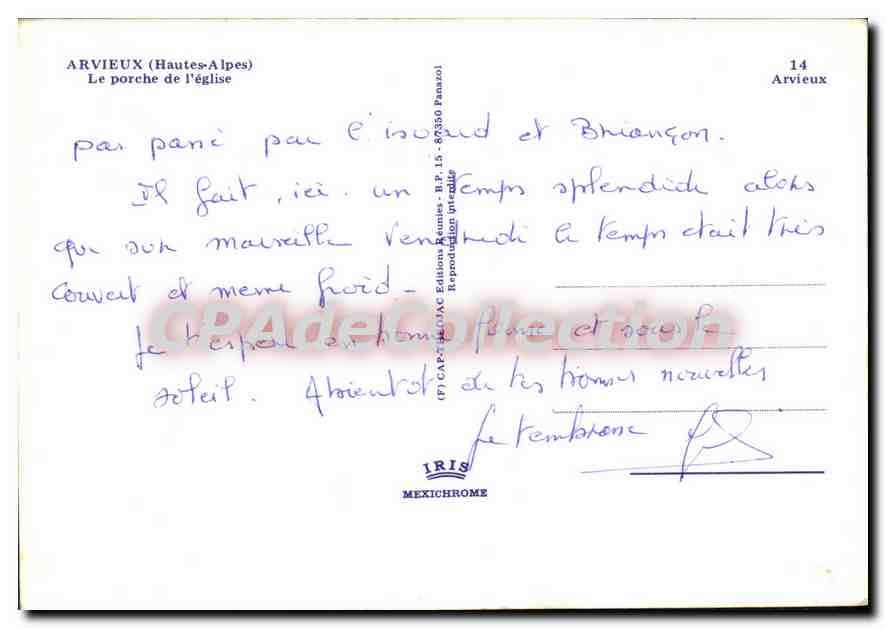 ARVIEUX (Hautes-Alpes)
Le porche de l'église
14
Arvieux
pas passé par l'isoard et Briançon.
Il fait, ici. un temps splendide alors
que sur marseille Vendredi le temps était très
couvert et meme froid -
Je t'espère en bonne forme et sous le
soleil. Abientot de tes bonnes nouvelles
Je t'embrasse
(F) CAP-THEOJAC Editions Réunies - B.P. 15 - 87350 Panazol
Reproduction interdite
CPAdeCollection
IRIS
MEXICHROME